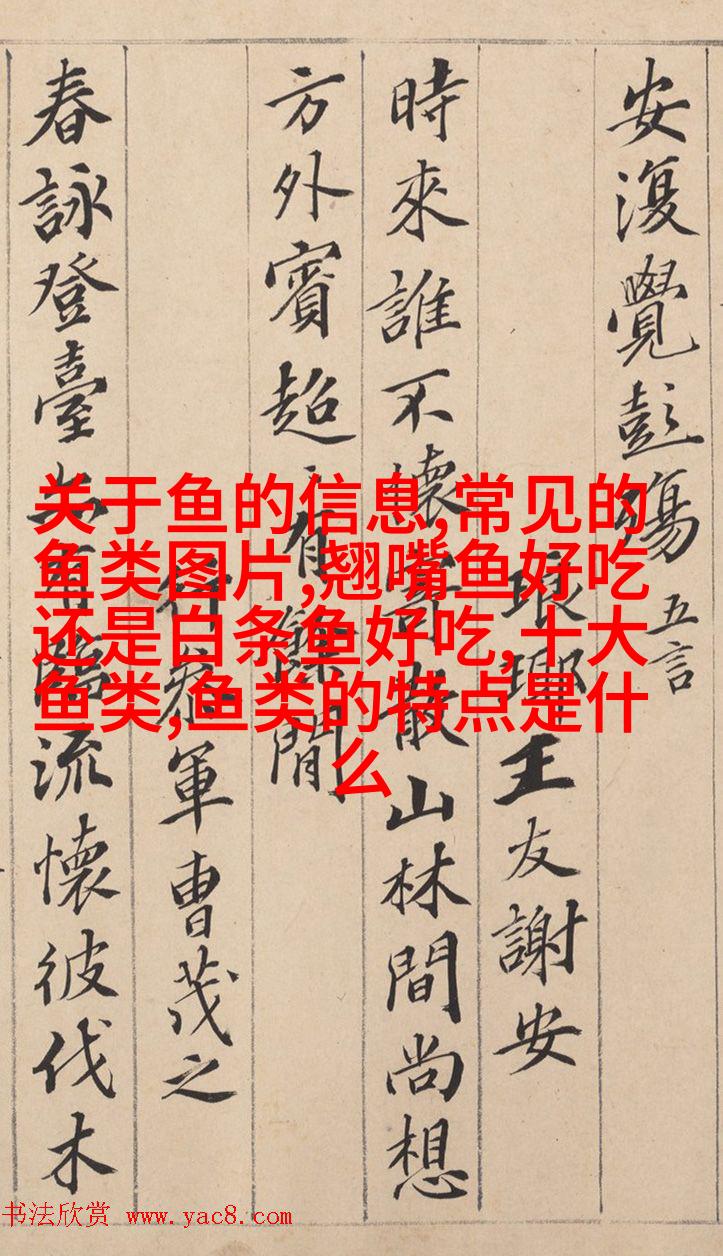 安復覺彭殤 五言
琅瑘王友謝安
時來誰不懷寄散山林間尚想
方外賓超〻有餘閒
行參軍曹茂之
春詠登臺亦有臨流懷彼伐木
关于鱼的信息,常见的
鱼类图片,翘嘴鱼好吃
还是白条鱼好吃,十大
鱼类,鱼类的特点是什
么
书法欣赏 www.yac8.com